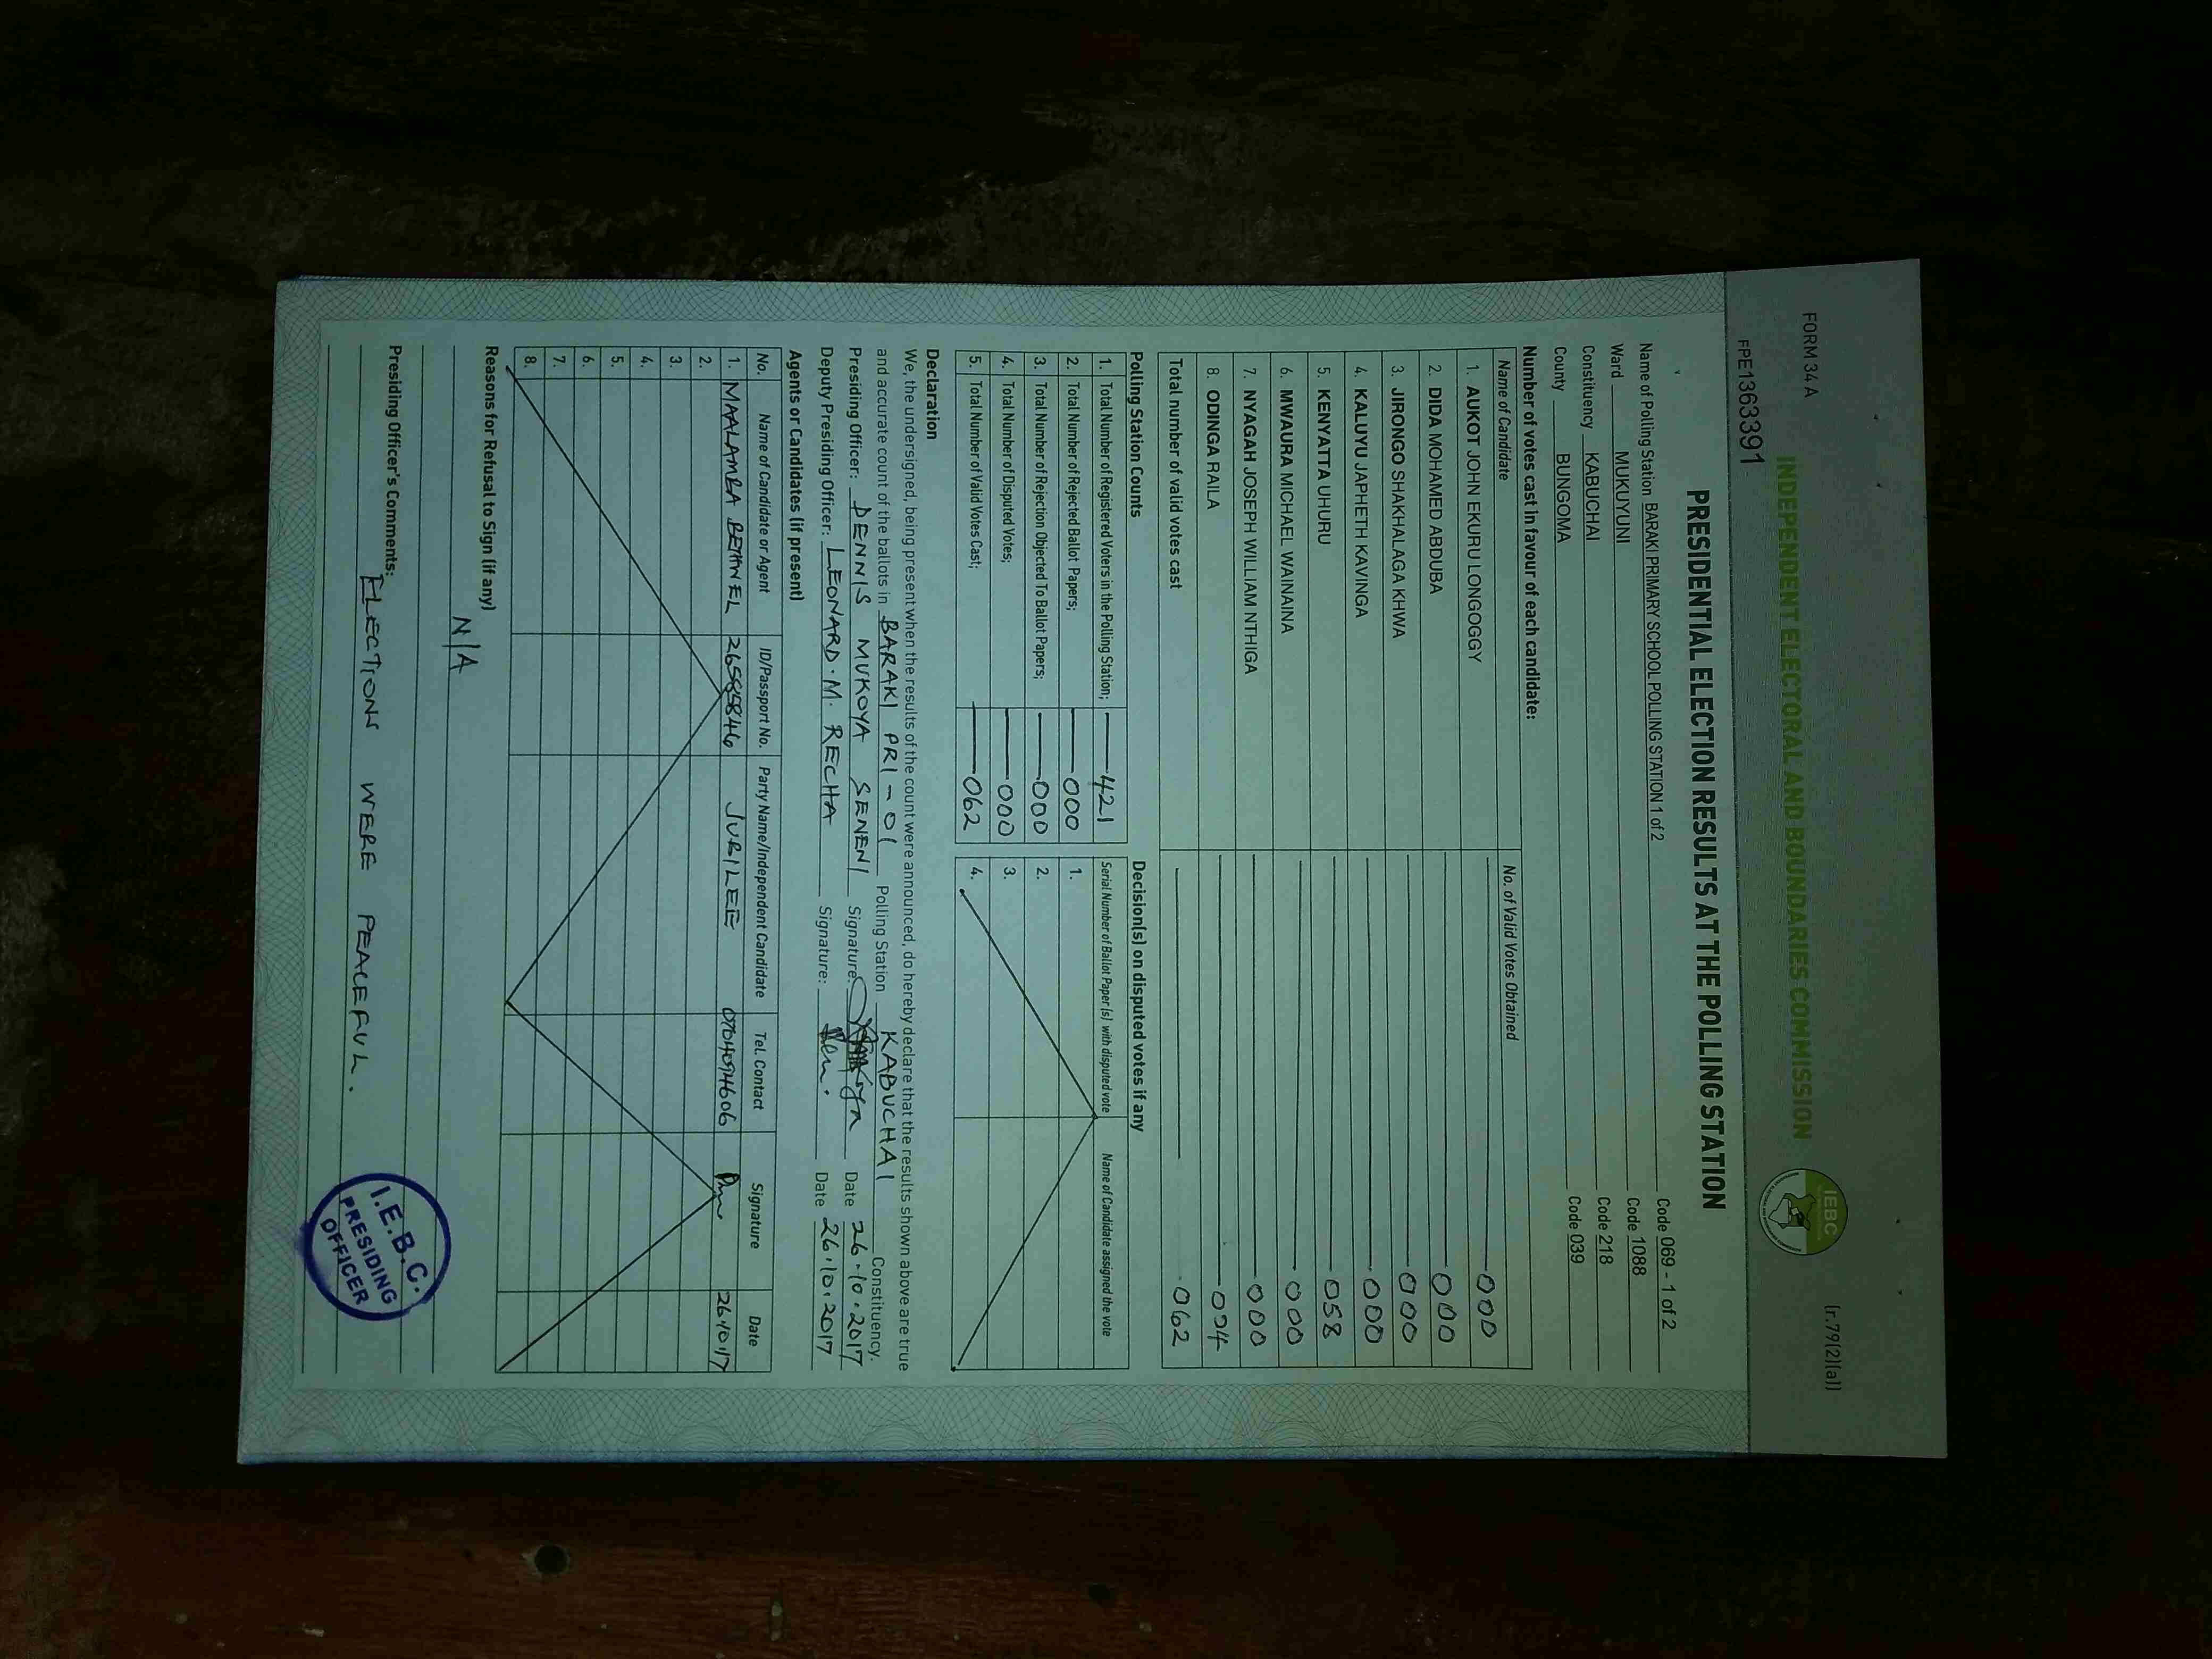 FORM 34 A
(r.79(2)(a))
INDEPENDENT ELECTORAL AND BOUNDARIES COMMISSION
IEBC
FPE1363391
PRESIDENTIAL ELECTION RESULTS AT THE POLLING STATION
Name of Polling Station BARAKI PRIMARY SCHOOL POLLING STATION 1 of 2 Code 069 - 1 of 2
Ward MUKUYUNI Code 1088
Constituency KABUCHAI Code 218
County BUNGOMA Code 039
Number of votes cast in favour of each candidate:
Name of Candidate No. of Valid Votes Obtained
1. AUKOT JOHN EKURU LONGOGGY 000
2. DIDA MOHAMED ABDUBA 000
3. JIRONGO SHAKHALAGA KHWA 000
4. KALUYU JAPHETH KAVINGA 000
5. KENYATTA UHURU 058
6. MWAURA MICHAEL WAINAINA 000
7. NYAGAH JOSEPH WILLIAM NTHIGA 000
8. ODINGA RAILA 004
Total number of valid votes cast 062
Polling Station Counts
1. Total Number of Registered Voters in the Polling Station; 421
2. Total Number of Rejected Ballot Papers; 000
3. Total Number of Rejection Objected To Ballot Papers; 000
4. Total Number of Disputed Votes; 000
5. Total Number of Valid Votes Cast; 062
Decision(s) on disputed votes if any
Serial Number of Ballot Paper (s) with disputed vote Name of Candidate assigned the vote
1.
2.
3.
4.
Declaration
We, the undersigned, being present when the results of the count were announced, do hereby declare that the results shown above are true
and accurate count of the ballots in BARAKI PRI - 01 Polling Station KABUCHAI Constituency.
Presiding Officer: DENNIS MUKOYA SENENI Signature: Date 26.10.2017
Deputy Presiding Officer: LEONARD. M. RECHA Signature: Date 26.10.2017
Agents or Candidates (if present)
No. Name of Candidate or Agent ID/Passport No. Party Name/Independent Candidate Tel. Contact Signature Date
1. MAALAMBA BETHWEL JUBILEE
2.
3.
4.
5.
6.
7.
8.
Reasons for Refusal to Sign (if any)
N/A
Presiding Officer's Comments:
ELECTIONS WERE PEACEFUL.
I.E.B.C.
PRESIDING
OFFICER